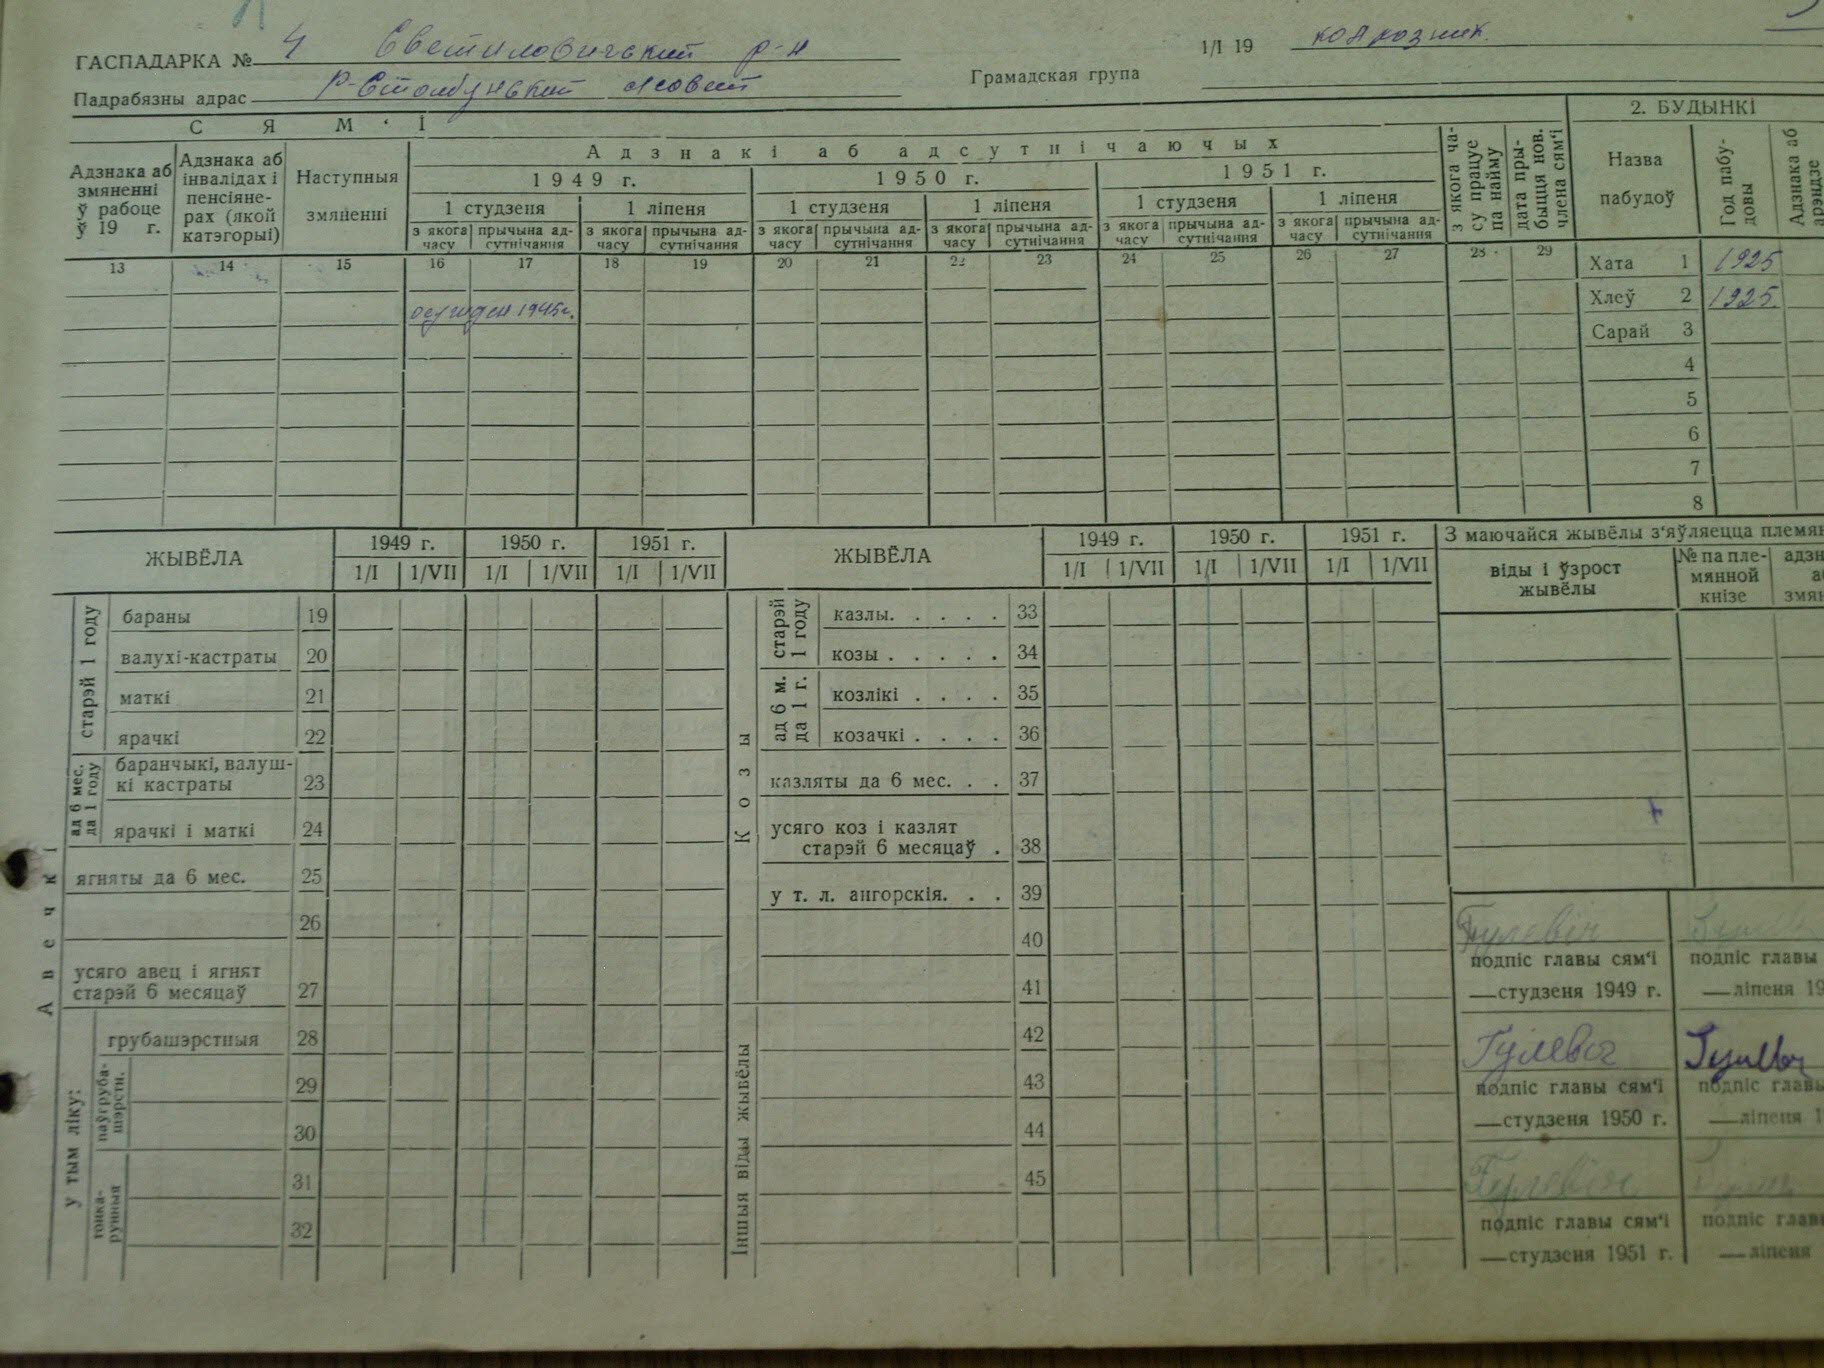 ГАСПАДАРКА № 4 Светиловичский р-н
1/I 19 колхозник.
Падрабязны адрас Р-Столбунский с/совет
Грамадская група
С Я М ‘ І
2. БУДЫНКІ
Адзнака аб змяненні ў рабоце ў 19 г.
Адзнака аб інвалідах і пенсіянерах (якой катэгорыі)
Наступныя змяненні
Адзнакі аб адсутнічаючых
1949 г. 1950 г. 1951 г.
1 студзеня 1 ліпеня 1 студзеня 1 ліпеня 1 студзеня 1 ліпеня
з якога часу прычына адсутнічання з якога часу прычына адсутнічання з якога часу прычына адсутнічання з якога часу прычына адсутнічання з якога часу прычына адсутнічання з якога часу прычына адсутнічання
з якога часу працуе па найму
дата прыбыцця нов. члена сям‘і
Назва пабудоў
Год пабудовы
Адзнака аб арэндзе
13 14 15 16 17 18 19 20 21 22 23 24 25 26 27 28 29
Хата 1 1925
осужден 1945г.
Хлеў 2 1925.
Сарай 3
4
5
6
7
8
ЖЫВЁЛА 1949 г. 1950 г. 1951 г.
1/I 1/VII 1/I 1/VII 1/I 1/VII
Авечкі
старэй 1 году
бараны 19
валухі-кастраты 20
маткі 21
ярачкі 22
ад 6 мес. да 1 году
баранчыкі, валушкі кастраты 23
ярачкі і маткі 24
ягняты да 6 мес. 25
26
усяго авец і ягнят старэй 6 месяцаў 27
у тым ліку:
грубашэрстныя 28
паўгрубашэрстн.
29
30
тонкарунныя
31
32
ЖЫВЁЛА 1949 г. 1950 г. 1951 г.
1/I 1/VII 1/I 1/VII 1/I 1/VII
Козы
старэй 1 году
казлы. . . . . 33
козы . . . . . 34
ад 6 м. да 1 г.
козлікі . . . . 35
козачкі . . . . 36
казляты да 6 мес. . . 37
усяго коз і казлят старэй 6 месяцаў . 38
у т. л. ангорскія. . . 39
40
41
Іншыя віды жывёлы
42
43
44
45
З маючайся жывёлы з‘яўляецца племян
віды і ўзрост жывёлы
№ па племянной кнізе
адзн
а
змян
Гулевіч
подпіс главы сям‘і подпіс главы
—студзеня 1949 г. —ліпеня 19
Гулевіч Гулевіч
подпіс главы сям‘і подпіс главы
—студзеня 1950 г. —ліпеня 1
Гулевіч
подпіс главы сям‘і подпіс главы
—студзеня 1951 г. —ліпеня